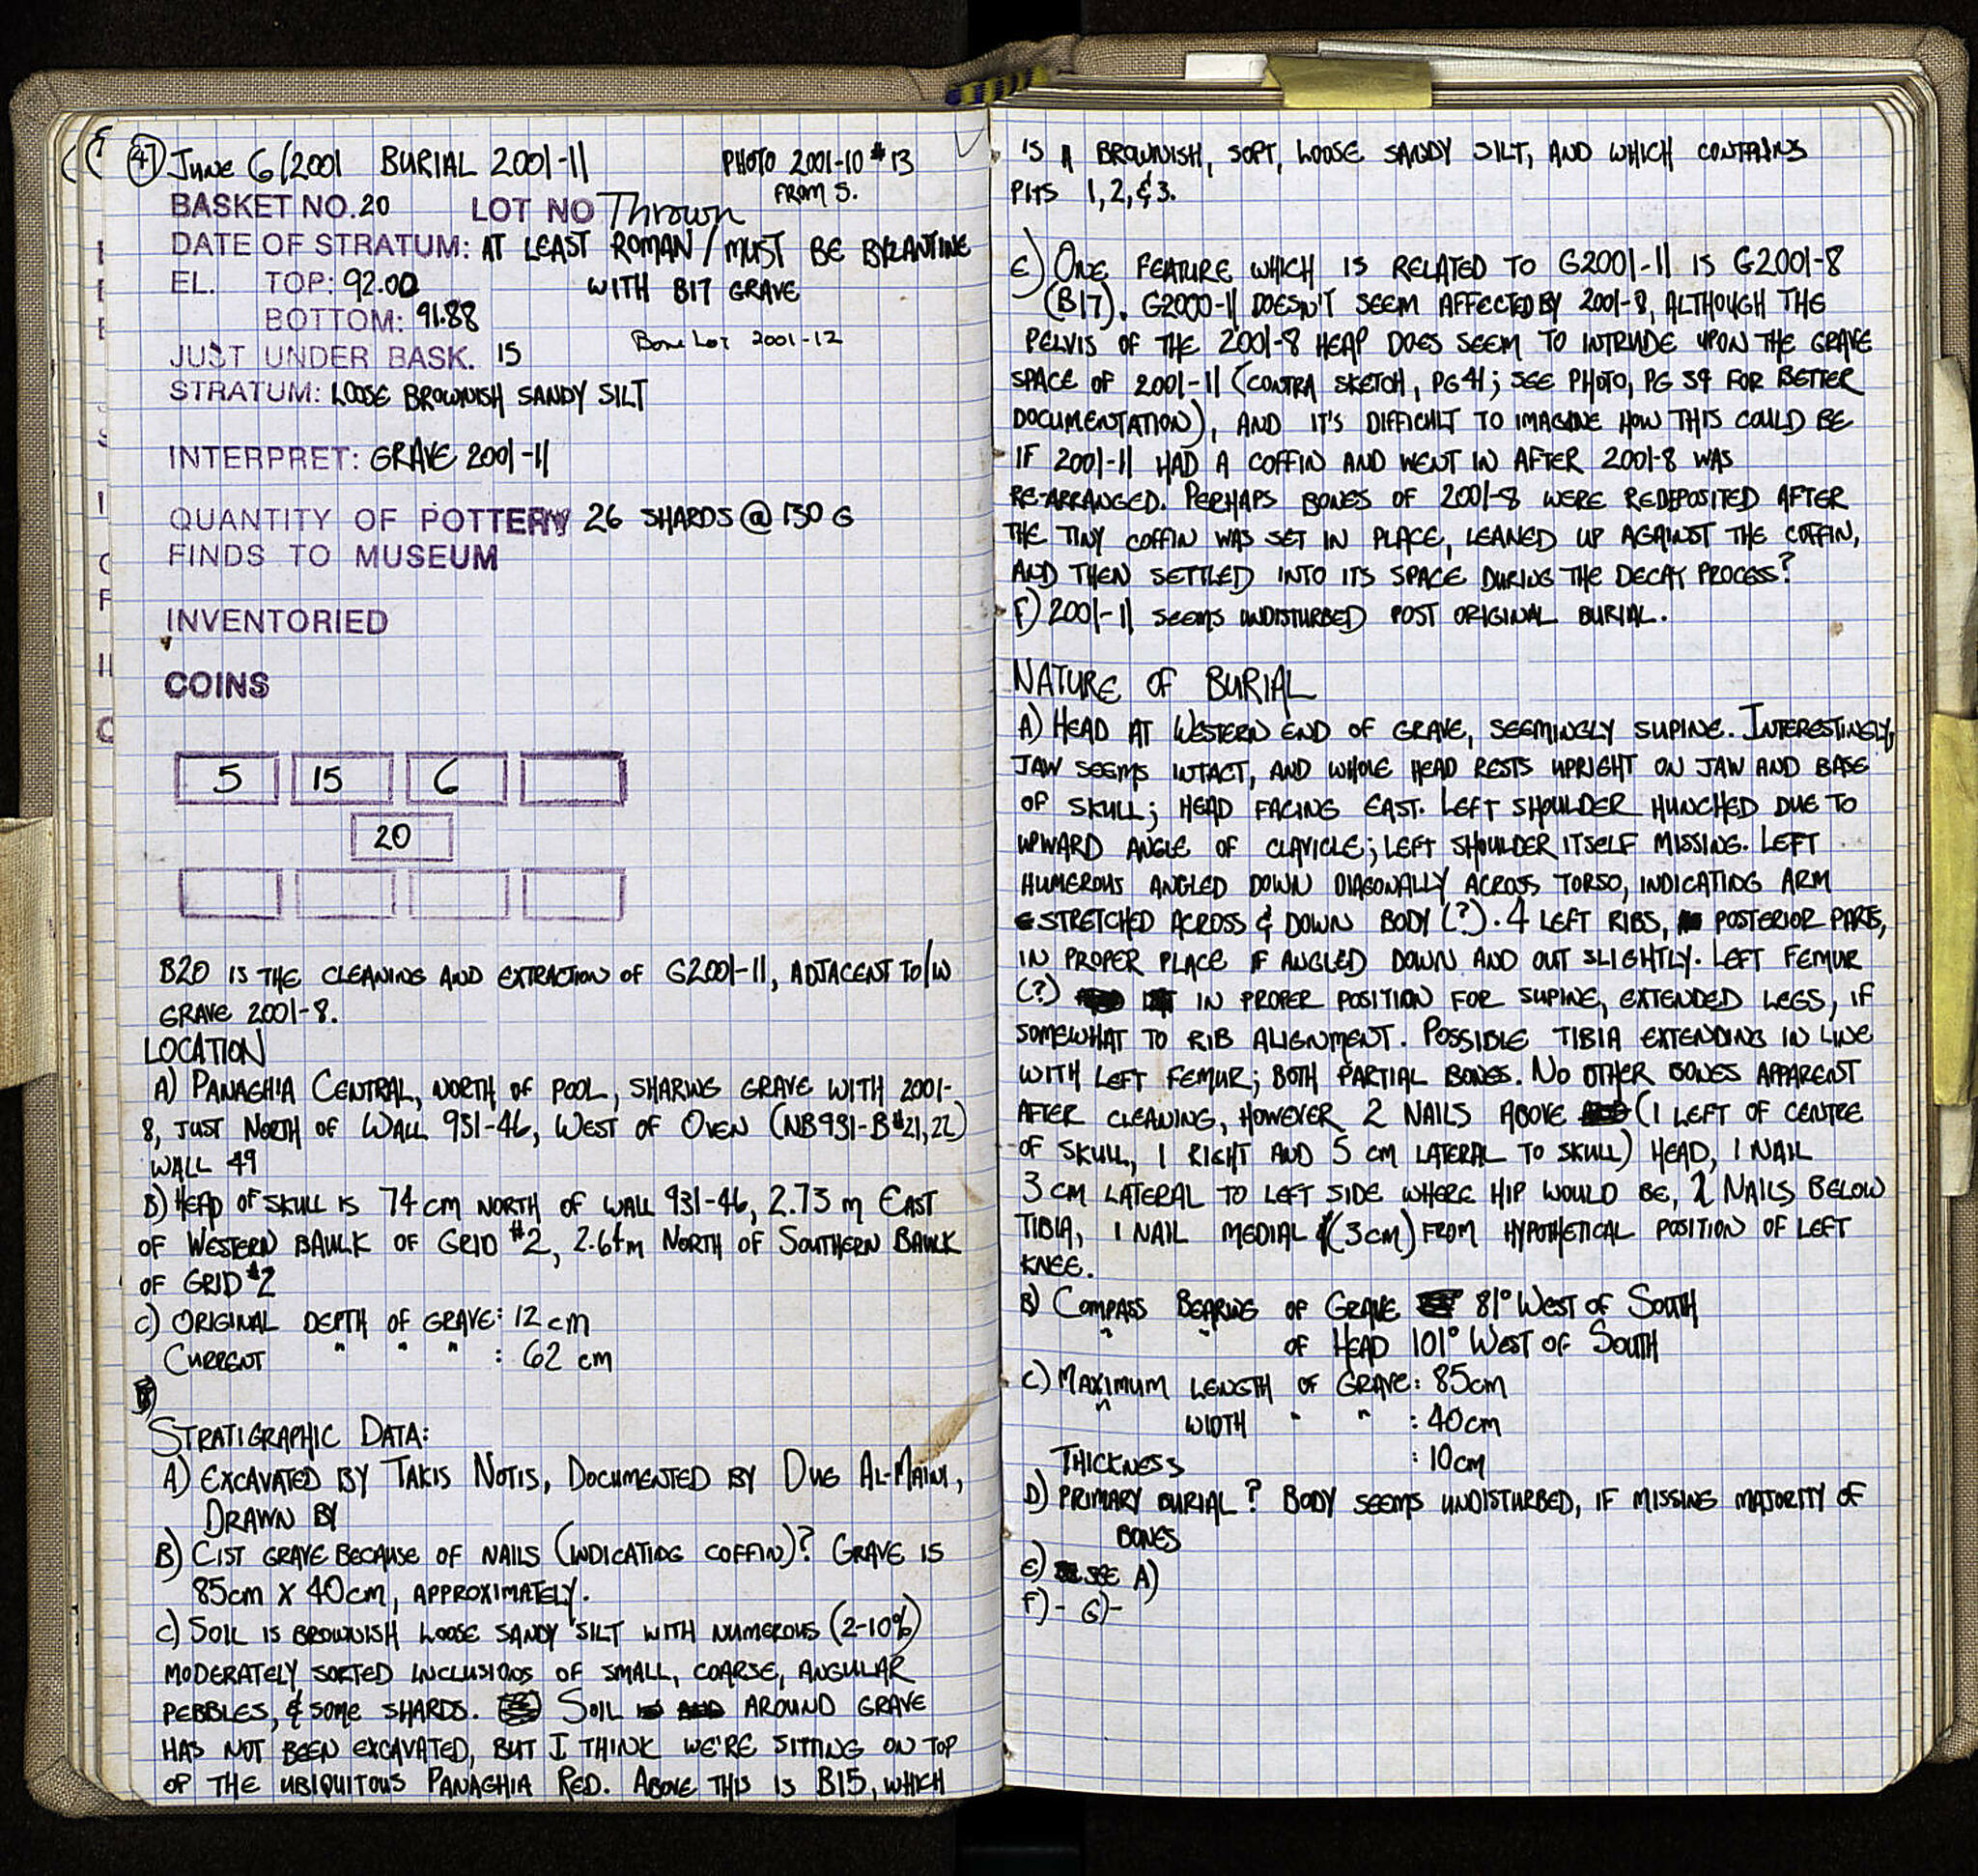 47 June 6/2001 BURIAL 2001-11 PHOTO 2001-10 #13
FROM S.
BASKET NO. 20 LOT NO Thrown
DATE OF STRATUM: AT LEAST ROMAN / MUST BE BYZANTINE
EL. TOP: 92.00 WITH B17 GRAVE
BOTTOM: 91.88
Bone Lot 2001-12
JUST UNDER BASK. 15
STRATUM: LOOSE BROWNISH SANDY SILT
INTERPRET: GRAVE 2001-11
QUANTITY OF POTTERY 26 SHARDS @ 130 G
FINDS TO MUSEUM
INVENTORIED
COINS
5 15 6
20
B20 IS THE CLEANING AND EXTRACTION OF G2001-11, ADJACENT TO/W
GRAVE 2001-8.
LOCATION
A) PANAGHIA CENTRAL, NORTH OF POOL, SHARING GRAVE WITH 2001-
8, JUST NORTH OF WALL 931-46, WEST OF OVEN (NB931-B#21,22)
WALL 49
B) HEAD OF SKULL IS 74 cm NORTH OF WALL 931-46, 2.73 m EAST
OF WESTERN BAULK OF GRID #2, 2.64m NORTH OF SOUTHERN BAULK
OF GRID #2
C) ORIGINAL DEPTH OF GRAVE: 12 cm
CURRENT " " " : 62 cm
STRATIGRAPHIC DATA:
A) EXCAVATED BY TAKIS NOTIS, DOCUMENTED BY DUE AL-MAINI,
DRAWN BY
B) CIST GRAVE BECAUSE OF NAILS (INDICATING COFFIN)? GRAVE IS
85cm X 40cm, APPROXIMATELY.
C) SOIL IS BROWNISH LOOSE SANDY SILT WITH NUMEROUS (2-10%)
MODERATELY SORTED INCLUSIONS OF SMALL, COARSE, ANGULAR
PEBBLES, & SOME SHARDS. SOIL AROUND GRAVE
HAS NOT BEEN EXCAVATED, BUT I THINK WE'RE SITTING ON TOP
OF THE UBIQUITOUS PANAGHIA RED. ABOVE THIS IS B15, WHICH
IS A BROWNISH, SOFT, LOOSE SANDY SILT, AND WHICH CONTAINS
PITS 1, 2, & 3.
E) ONE FEATURE WHICH IS RELATED TO G2001-11 IS G2001-8
(B17). G2000-11 DOESN'T SEEM AFFECTED BY 2001-8, ALTHOUGH THE
PELVIS OF THE 2001-8 HEAP DOES SEEM TO INTRUDE UPON THE GRAVE
SPACE OF 2001-11 (CONTRA SKETCH, PG 41; SEE PHOTO, PG 39 FOR BETTER
DOCUMENTATION), AND IT'S DIFFICULT TO IMAGINE HOW THIS COULD BE
IF 2001-11 HAD A COFFIN AND WENT IN AFTER 2001-8 WAS
RE-ARRANGED. PERHAPS BONES OF 2001-8 WERE REDEPOSITED AFTER
THE TINY COFFIN WAS SET IN PLACE, LEANED UP AGAINST THE COFFIN,
AND THEN SETTLED INTO ITS SPACE DURING THE DECAY PROCESS?
F) 2001-11 SEEMS UNDISTURBED POST ORIGINAL BURIAL.
NATURE OF BURIAL
A) HEAD AT WESTERN END OF GRAVE, SEEMINGLY SUPINE. INTERESTINGLY,
JAW SEEMS INTACT, AND WHOLE HEAD RESTS UPRIGHT ON JAW AND BASE
OF SKULL; HEAD FACING EAST. LEFT SHOULDER HUNCHED DUE TO
UPWARD ANGLE OF CLAVICLE; LEFT SHOULDER ITSELF MISSING. LEFT
HUMEROUS ANGLED DOWN DIAGONALLY ACROSS TORSO, INDICATING ARM
STRETCHED ACROSS & DOWN BODY (?). 4 LEFT RIBS, POSTERIOR PARTS,
IN PROPER PLACE IF ANGLED DOWN AND OUT SLIGHTLY. LEFT FEMUR
(?) IN PROPER POSITION FOR SUPINE, EXTENDED LEGS, IF
SOMEWHAT TO RIB ALIGNMENT. POSSIBLE TIBIA EXTENDING IN LINE
WITH LEFT FEMUR; BOTH PARTIAL BONES. NO OTHER BONES APPARENT
AFTER CLEANING, HOWEVER 2 NAILS ABOVE (1 LEFT OF CENTRE
OF SKULL, 1 RIGHT AND 5 CM LATERAL TO SKULL) HEAD, 1 NAIL
3 CM LATERAL TO LEFT SIDE WHERE HIP WOULD BE, 2 NAILS BELOW
TIBIA, 1 NAIL MEDIAL (3cm) FROM HYPOTHETICAL POSITION OF LEFT
KNEE.
B) COMPASS BEARING OF GRAVE 81° WEST OF SOUTH
" " OF HEAD 101° WEST OF SOUTH
C) MAXIMUM LENGTH OF GRAVE: 85cm
" WIDTH " " : 40cm
THICKNESS : 10cm
D) PRIMARY BURIAL? BODY SEEMS UNDISTURBED, IF MISSING MAJORITY OF
BONES
E) SEE A)
F) - G) -